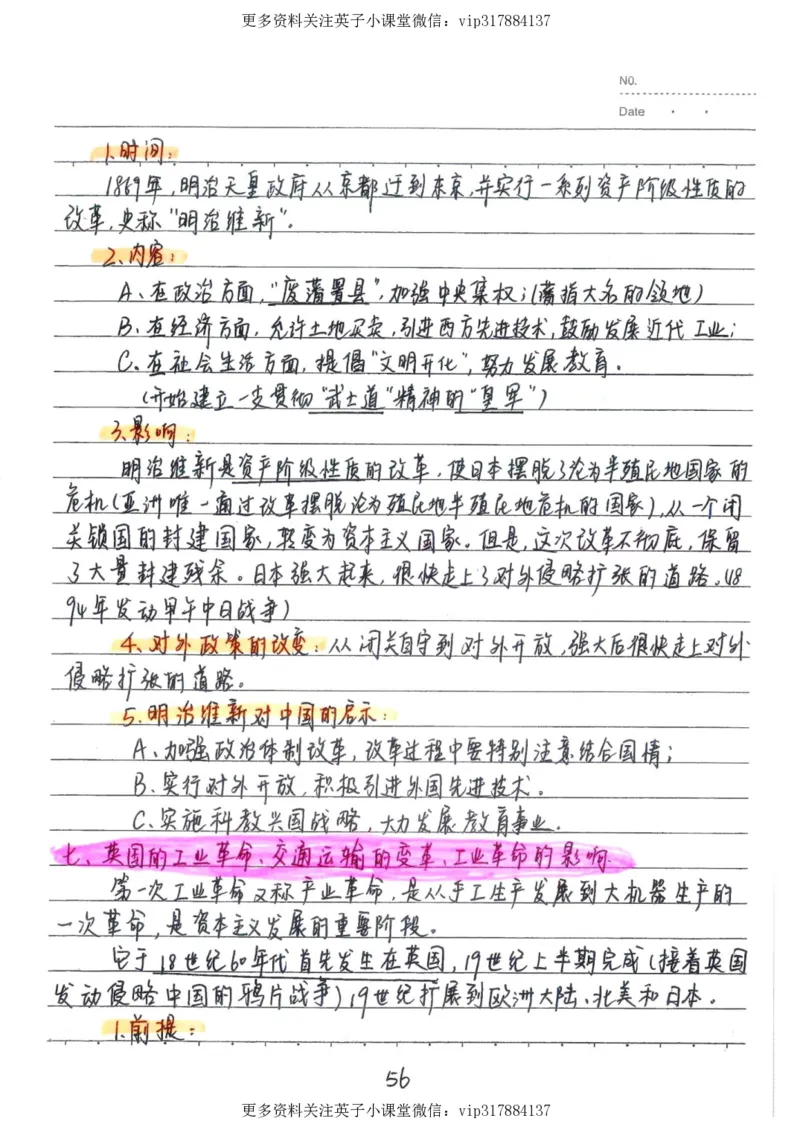 更多资料关注英子小课堂微信：vip317884137
NO.
Date
1.时间：
1869年，明治天皇政府从京都迁到东京，并实行一系列资产阶级性质的
改革，史称"明治维新"。
2、内容：
A、在政治方面，"废藩置县"，加强中央集权；（藩指大名的领地）
B、在经济方面，允许土地买卖，引进西方先进技术，鼓励发展近代工业；
C、在社会生活方面，提倡"文明开化"，努力发展教育。
（开始建立一支贯彻"武士道"精神的"皇军"）
3、影响：
明治维新是资产阶级性质的改革，使日本摆脱了沦为半殖民地国家的
危机（亚洲唯一通过改革摆脱沦为殖民地半殖民地危机的国家），从一个闭
关锁国的封建国家，转变为资本主义国家。但是，这次改革不彻底，保留
了大量封建残余。日本强大起来，很快走上了对外侵略扩张的道路。（18
94年发动甲午中日战争）
4、对外政策的改变：从闭关自守到对外开放，强大后很快走上对外
侵略扩张的道路。
5.明治维新对中国的启示：
A、加强政治体制改革，改革过程中要特别注意结合国情；
B、实行对外开放，积极引进外国先进技术。
C、实施科教兴国战略，大力发展教育事业.
七、英国的工业革命、交通运输的变革、工业革命的影响
第一次工业革命又称产业革命，是从手工生产发展到大机器生产的
一次革命，是资本主义发展的重要阶段。
它于18世纪60年代首先发生在英国，19世纪上半期完成（接着英国
发动侵略中国的鸦片战争）19世纪扩展到欧洲大陆、北美和日本。
1.前提：
56
更多资料关注英子小课堂微信：vip317884137